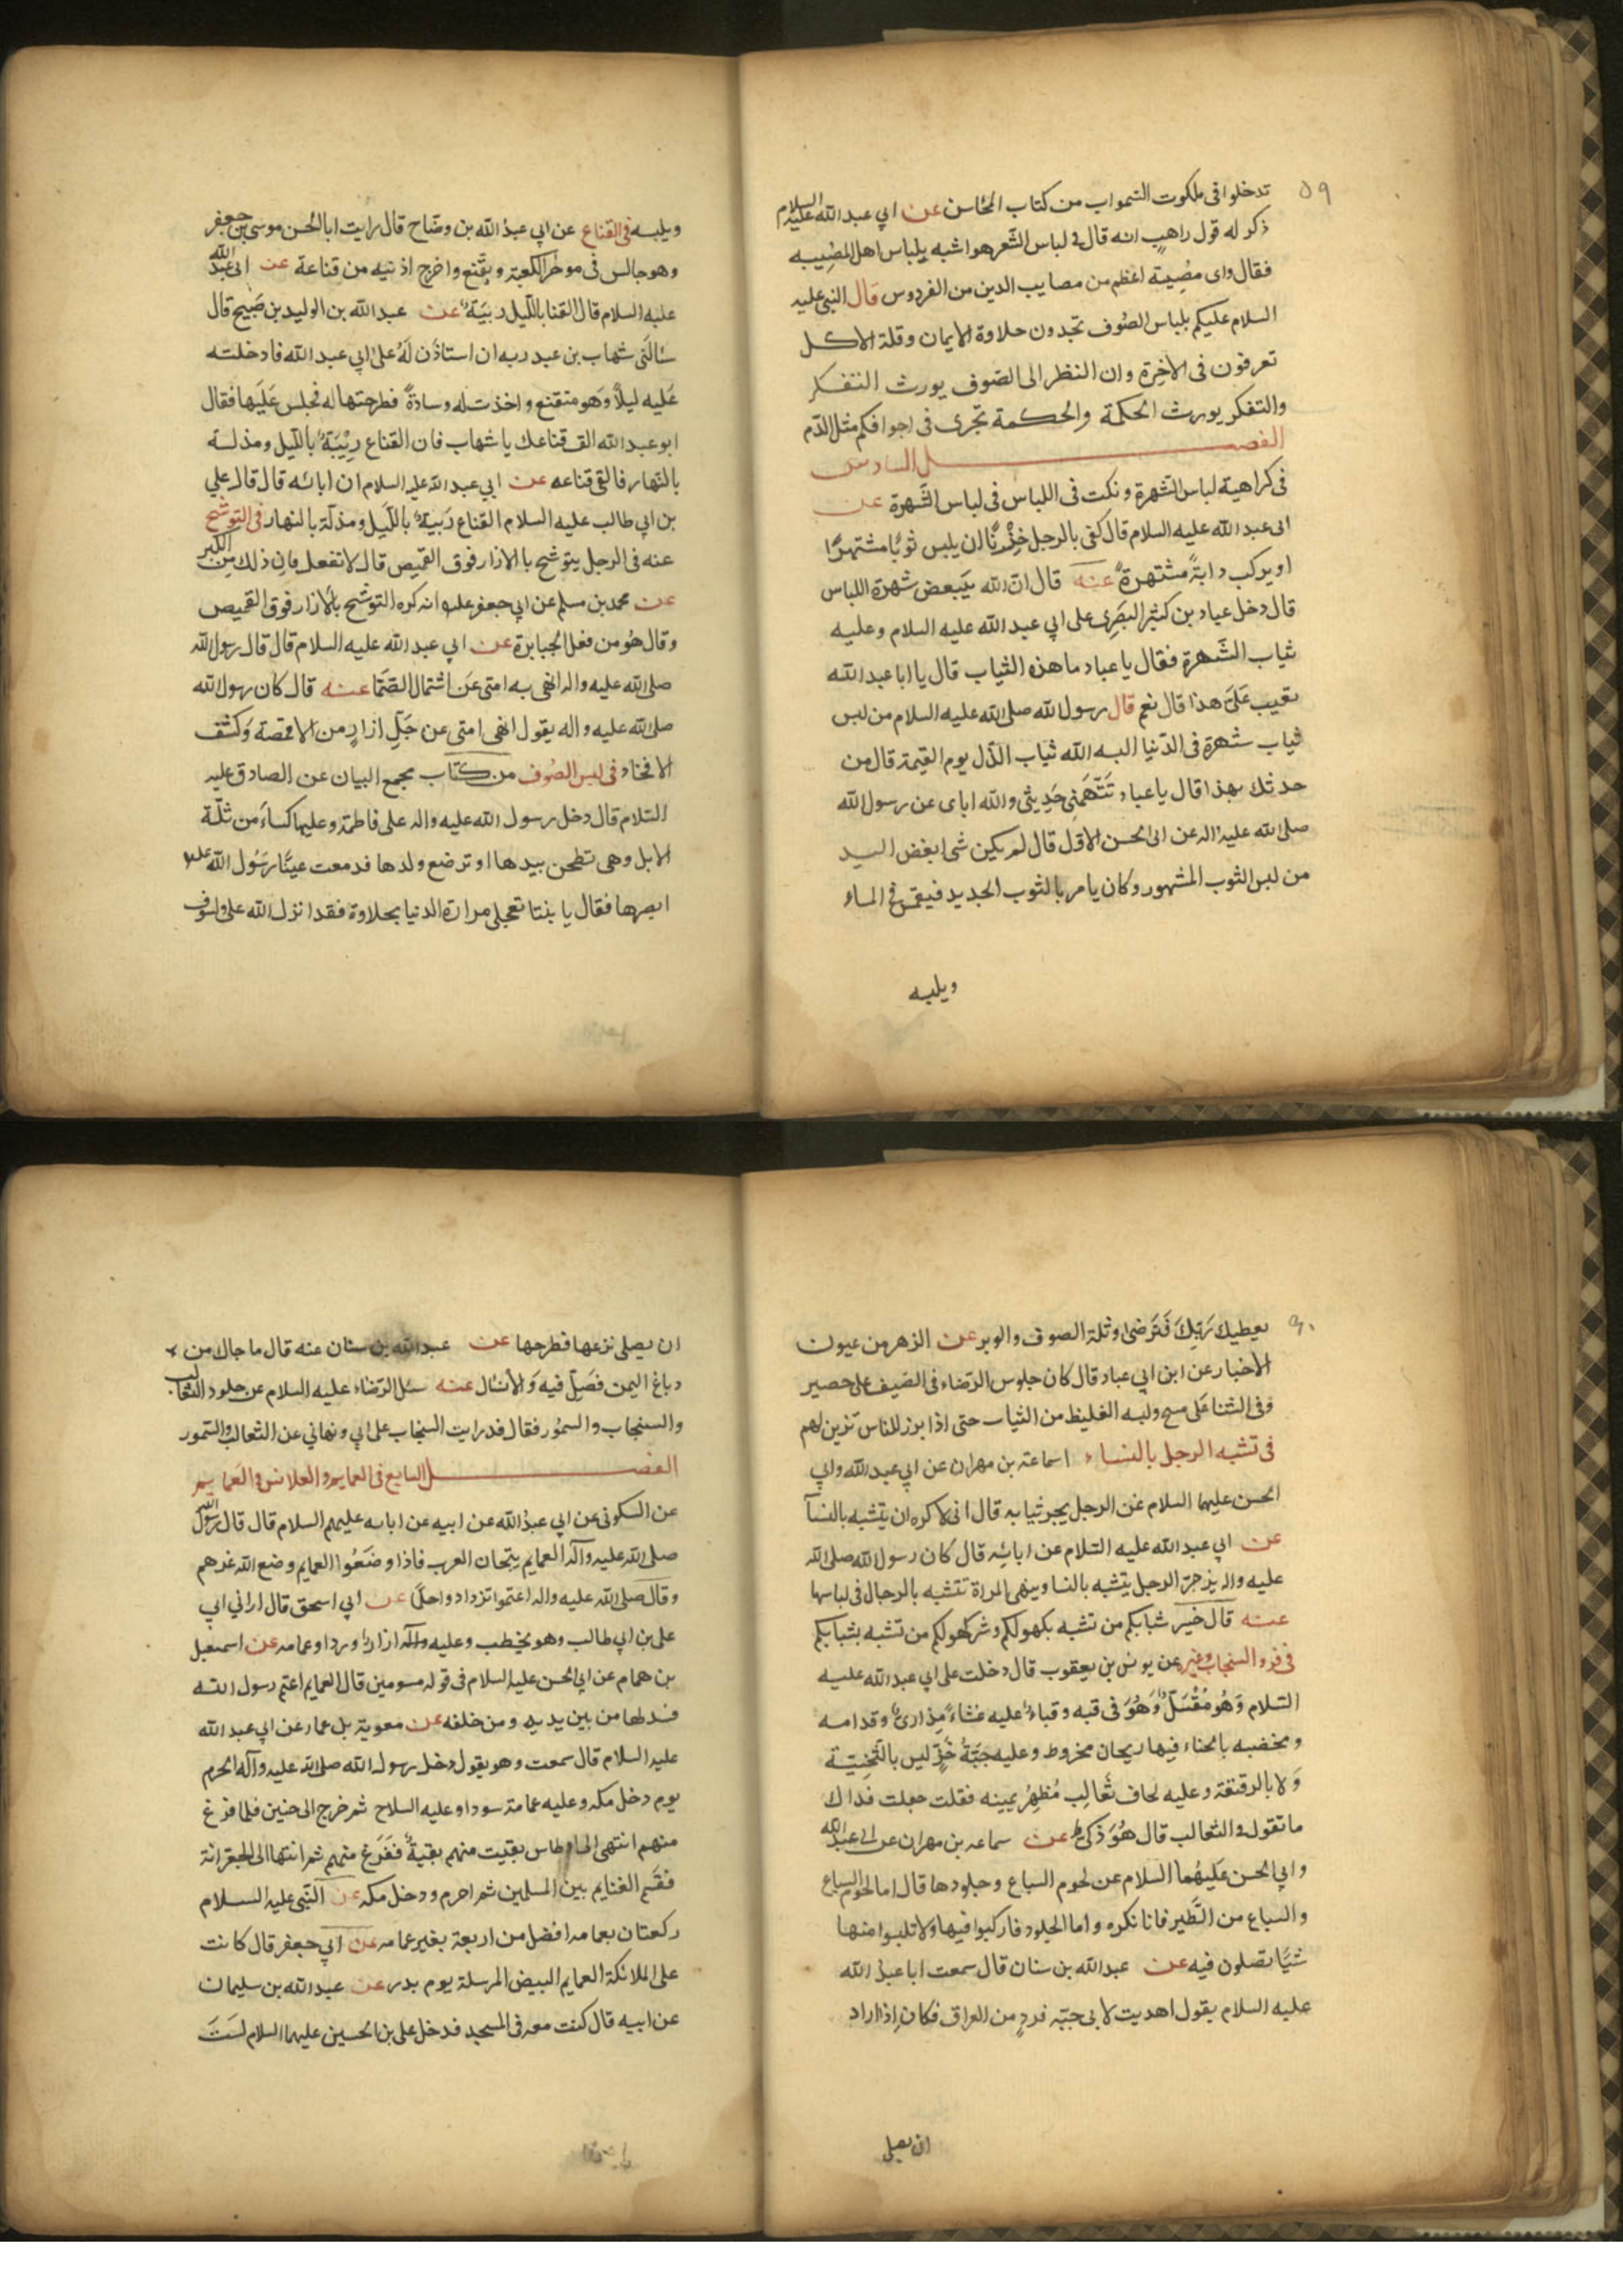 ٥٩
تدخلوا فى ملكوت السموات من كتاب المحاسن عن ابي عبد الله عليه السلام
ذكر له قول راهب انه قال فى لباس الشعر هو اشبه بلباس اهل المصيبه
فقال واى مصيبة اعظم من مصايب الدين من الفردوس قال النبى عليه
السلام عليكم بلباس الصوف تجدون حلاوة الايمان وقلة الاكل
تعرفون فى الاخرة وان النظر الى الصوف يورث التفكر
والتفكر يورث الحكمة والحكمة تجرى فى اجوافكم مثل الدم
الفصل السادس
فى كراهية لباس الشهرة ونكت فى اللباس فى لباس الشهرة عن
ابى عبد الله عليه السلام قال كفى بالرجل خزيًا ان يلبس ثوبًا مشتهرًا
او يركب دابةً مشتهرة عنه قال ان الله يبغض شهرة اللباس
قال دخل عباد بن كثير البصرى على ابي عبد الله عليه السلام وعليه
ثياب الشهرة فقال يا عباد ما هذه الثياب قال يا ابا عبد الله
تعيب على هذا قال نعم قال رسول الله صلى الله عليه السلام من لبس
ثياب شهرة فى الدنيا البسه الله ثياب الذل يوم القيمة قال من
حدثك بهذا قال يا عباد تتهمنى حديثى والله اباى عن رسول الله
صلى الله عليه واله عن ابى الحسن الاول قال لم يكن شى ابغض اليه
من لبس الثوب المشهور وكان يامر بالثوب الجديد فيغمس فى الماء
ويلبسه
ويلبسه فى القناع عن ابي عبد الله بن وضاح قال رايت ابا الحسن موسى بن جعفر
وهو جالس فى موخر الكعبة وبقنع واخرج اذنيه من قناعة عن ابى عبد الله
عليه السلام قال القنا بالليل ريبة عن عبد الله بن الوليد بن صبيح قال
سألنى شهاب بن عبد ربه ان استاذن له على ابي عبد الله فادخلته
عليه ليلًا وهو متقنع واخذت له وسادة فطرحتها له فجلس عليها فقال
ابو عبد الله الق قناعك يا شهاب فان القناع ريبة بالليل ومذلة
بالنهار فالقى قناعه عن ابي عبد الله عليه السلام ان ابائه قال قال على
بن ابي طالب عليه السلام القناع ريبة بالليل ومذلة بالنهار فى التوشح
عنه فى الرجل يتوشح بالازار فوق القميص قال لا تفعل فان ذلك من الكبر
عن محمد بن مسلم عن ابي جعفر عليه انه كره التوشح بالازار فوق القميص
وقال هو من فعل الجبابرة عن ابي عبد الله عليه السلام قال قال رسول الله
صلى الله عليه واله انهى به امتى عن اشتمال الصما عنه قال كان رسول الله
صلى الله عليه واله يقول انهى امتى عن حل ازار من الاقمصة وكشف
الافخاذ فى لبس الصوف من كتاب مجمع البيان عن الصادق عليه
السلام قال دخل رسول الله عليه واله على فاطمة وعليها كساء من ثلة
الابل وهى تطحن بيدها او ترضع ولدها فدمعت عينا رسول الله عليه
ابصرها فقال يا بنتا تعجلى مرارة الدنيا بحلاوة فقد انزل الله على ولسوف
٦٠
يعطيك ربك فترضى وثلة الصوف والوبر عن الزهر من عيون
الاخبار عن ابن ابي عباد قال كان جلوس الرضاء فى الصيف على حصير
وفى الشتا على مسح ولبسه الغليظ من الثياب حتى اذا برز للناس تزين لهم
فى تشبه الرجل بالنساء اسماعة بن مهران عن ابي عبد الله وابي
الحسن عليهما السلام عن الرجل يجر ثيابه قال انى لاكره ان يتشبه بالنسآ
عن ابي عبد الله عليه السلام عن ابائه قال كان رسول الله صلى الله
عليه واله يزجر الرجل يتشبه بالنسا وينهى المراة تتشبه بالرجال فى لباسها
عنه قال خير شبابكم من تشبه بكهولكم وشر كهولكم من تشبه بشبابكم
فى فرو السنجاب وغيره عن يونس بن يعقوب قال دخلت على ابي عبد الله عليه
السلام وهو معتل وهو فى قبه وقباء عليه غشاء مذارى وقدامه
ومخضبه بالحناء فيها ريحان مخروط وعليه جبة خز ليس بالثخينة
ولا بالرقيقة وعليه لحاف ثعالب مظهر يمينه فقلت جعلت فداك
ما تقول فى الثعالب قال هو ذكى عن سماعه بن مهران عن ابى عبد الله
وابي الحسن عليهما السلام عن لحوم السباع وجلودها قال اما لحوم السباع
والسباع من الطير فانا نكره واما الجلود فاركبوا فيها ولا تلبسوا منها
شيًا تصلون فيه عن عبد الله بن سنان قال سمعت ابا عبد الله
عليه السلام يقول اهديت لابى جبة فرو من العراق فكان اذا اراد
ان يصلى
ان يصلى نزعها فطرحها عن عبد الله بن سنان عنه قال ما جاك من
دباغ اليمن فصل فيه ولا تسال عنه سئل الرضاء عليه السلام عن جلود الثعالب
والسنجاب والسمور فقال قد رايت السنجاب على ابي ونهاني عن الثعالب والسمور
الفصل السابع فى العمايم والقلانس فى العمايم
عن السكونى عن ابي عبد الله عن ابيه عن ابائه عليهم السلام قال قال رسول الله
صلى الله عليه وآله العمايم تيجان العرب فاذا وضعوا العمايم وضع الله عزهم
وقال صلى الله عليه واله اعتموا تزدادوا حلمًا عن ابي اسحق قال ارانى ابي
على بن ابي طالب وهو يخطب وعليه وآله ازار وردا وعمامه عن اسمعيل
بن همام عن ابي الحسن عليه السلام فى قوله مسومين قال العمايم اعتم رسول الله
فسدلها من بين يديه ومن خلفه عن معوية بل عمار عن ابي عبد الله
عليه السلام قال سمعت وهو يقول دخل رسول الله صلى الله عليه وآله الحرم
يوم دخل مكه وعليه عمامة سودا وعليه السلاح ثم خرج الى حنين فلما فرغ
منهم انتهى الى اوطاس بقيت منهم بقية ففرغ منهم ثم انتها الى الجعرانة
فقسم الغنايم بين المسلمين ثم احرم ودخل مكه عن النبى عليه السلام
ركعتان بعمامه افضل من اربعة بغير عمامه عن ابي جعفر قال كانت
على الملائكة العمايم البيض المرسلة يوم بدر عن عبد الله بن سليمان
عن ابيه قال كنت معه فى المسجد فدخل على بن الحسين عليهما السلام لست